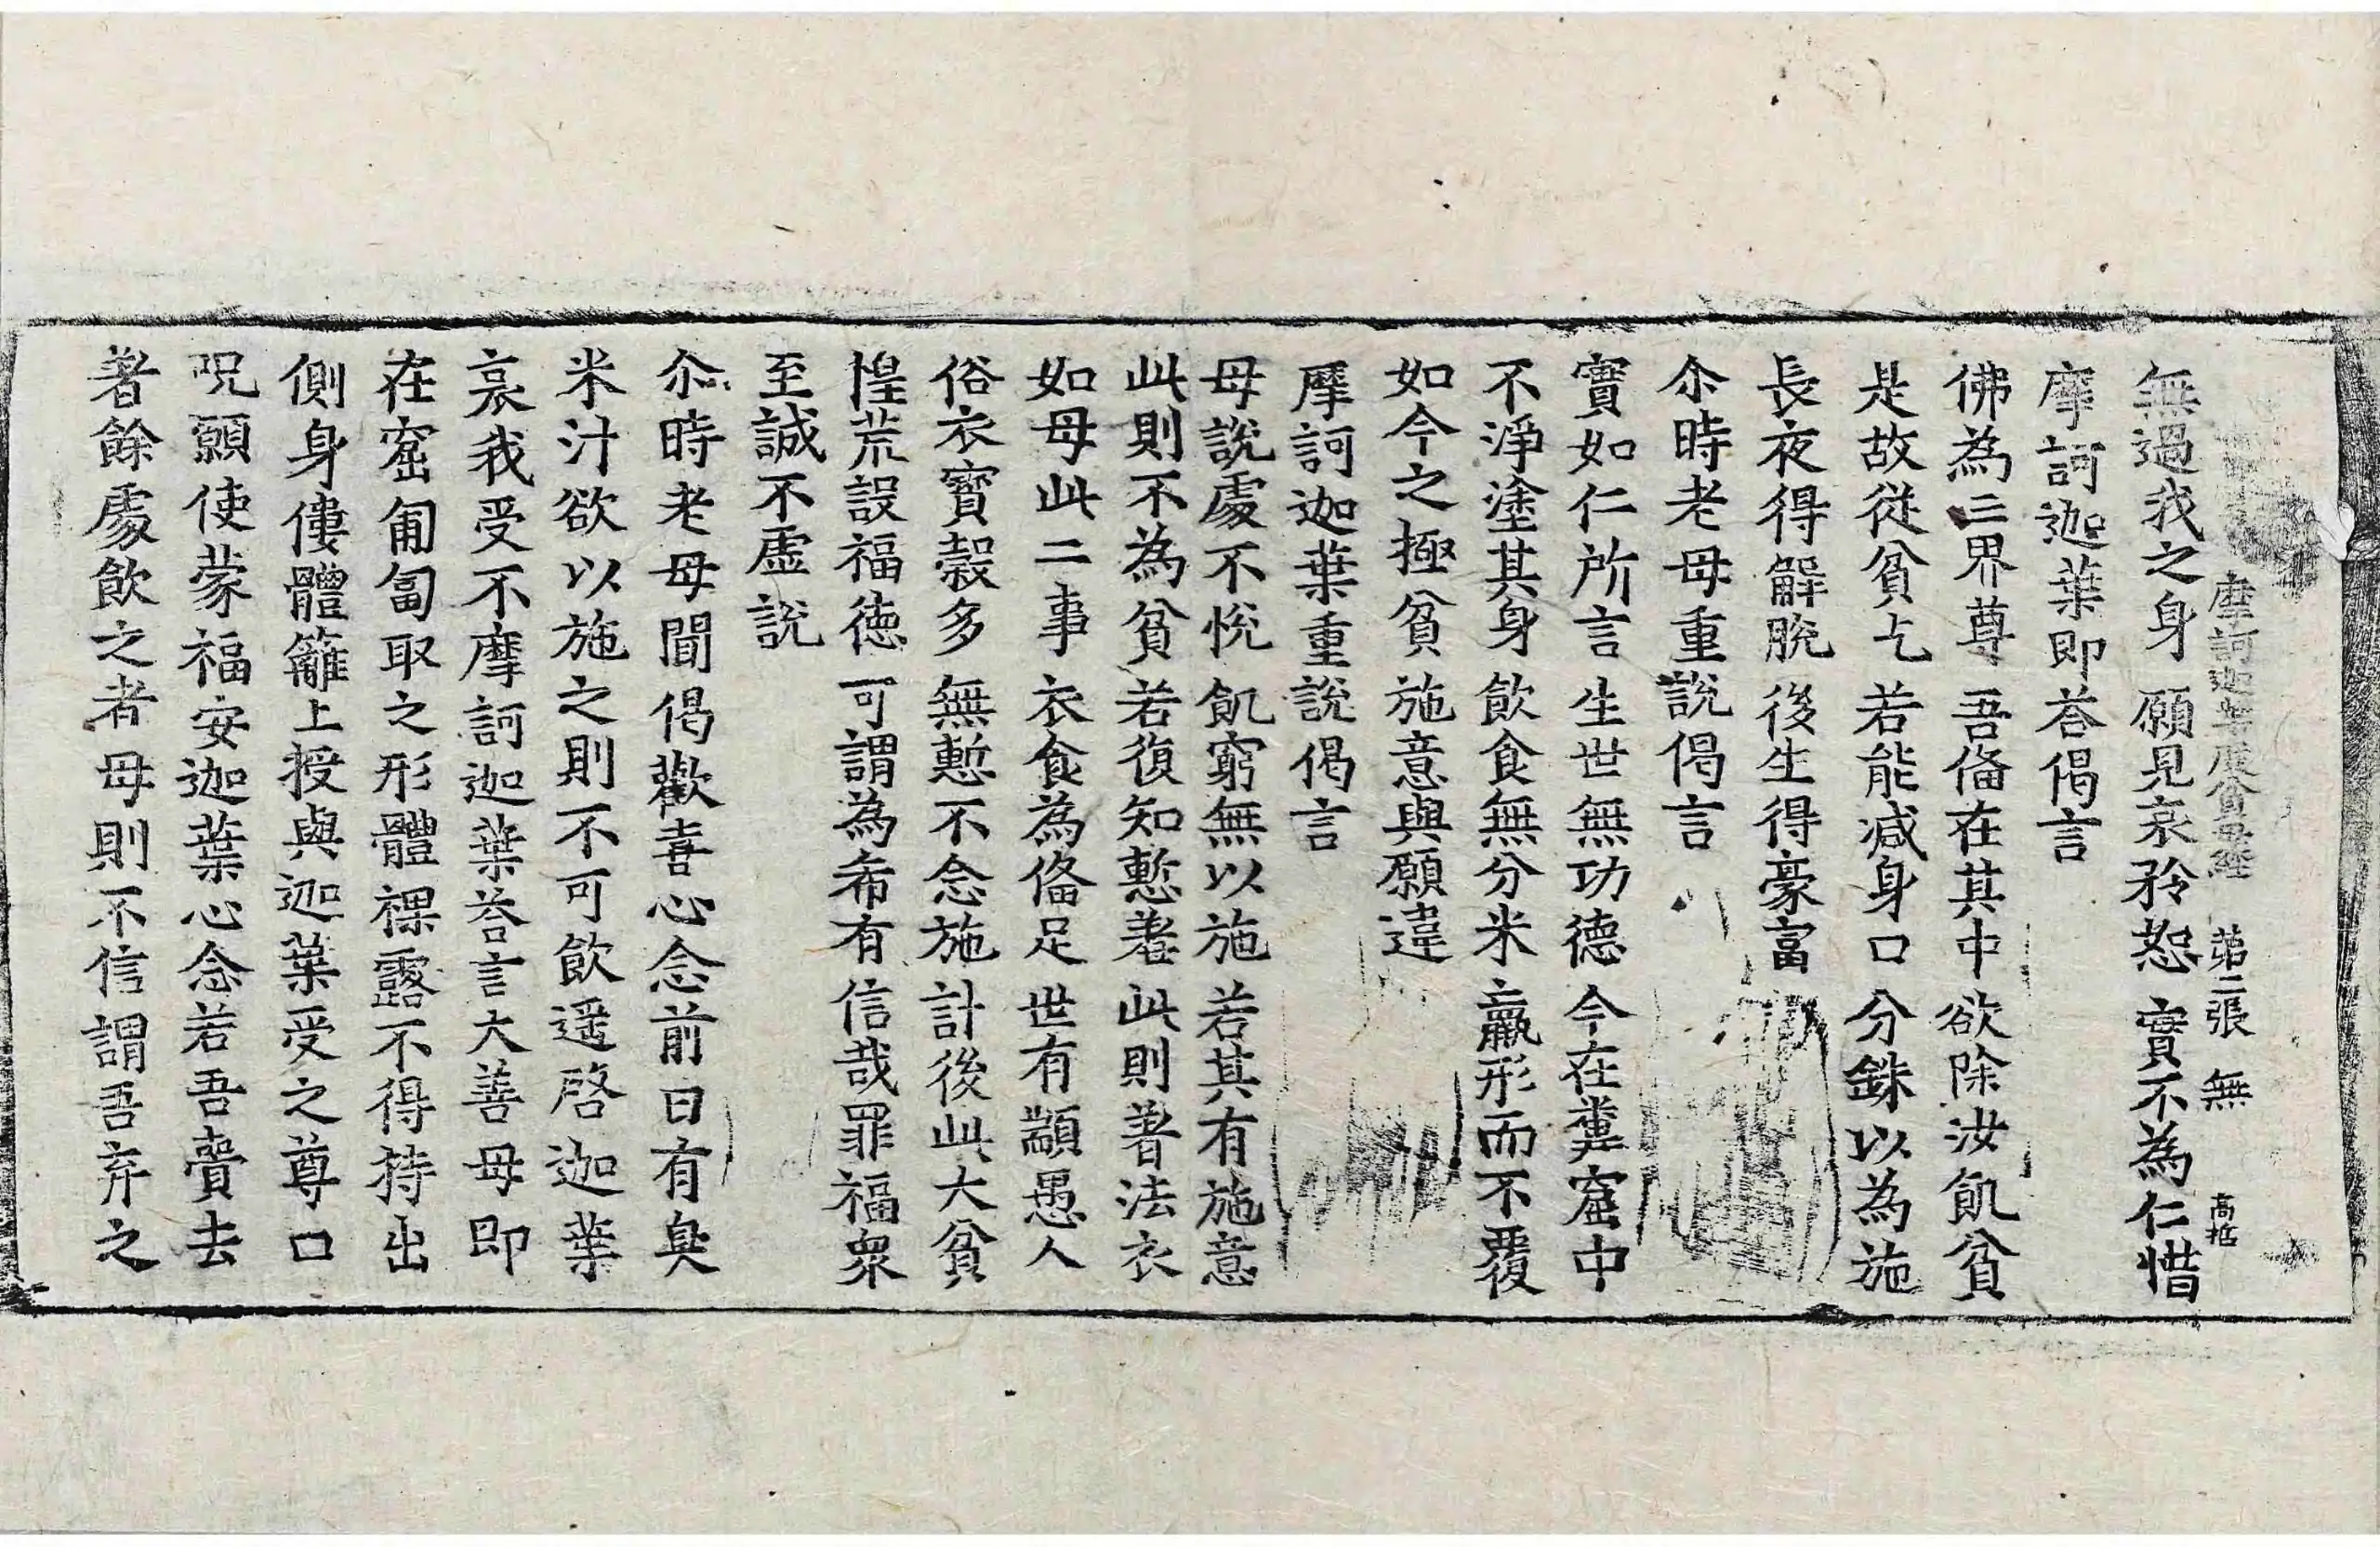 摩訶迦葉度貧母經 第三張 無 高指
無過我之身 願見哀矜恕 實不為仁惜
摩訶迦葉即荅偈言
佛為三界尊 吾俻在其中 欲除汝飢貧
是故從貧乞 若能減身口 分銖以為施
長夜得解脫 後生得豪富
尒時老母重說偈言
實如仁所言 生世無功德 今在糞窟中
不淨塗其身 飲食無分米 羸形而不覆
如今之極貧 施意與願違
摩訶迦葉重說偈言
母說處不悅 飢窮無以施 若其有施意
此則不為貧 若復知慙羞 此則著法衣
如母此二事 衣食為俻足 世有顓愚人
俗衣寶穀多 無慙不念施 計後此大貧
惶荒設福徳 可謂為希有 信哉罪福衆
至誠不虛說
尒時老母聞偈歡喜心念前日有臭
米汁欲以施之則不可飲遥啓迦葉
哀我受不摩訶迦葉荅言大善母即
在窟匍匐取之形體裸露不得持出
側身僂體籬上授與迦葉受之尊口
呪願使蒙福安迦葉心念若吾賷去
著餘處飲之者母則不信謂吾弃之